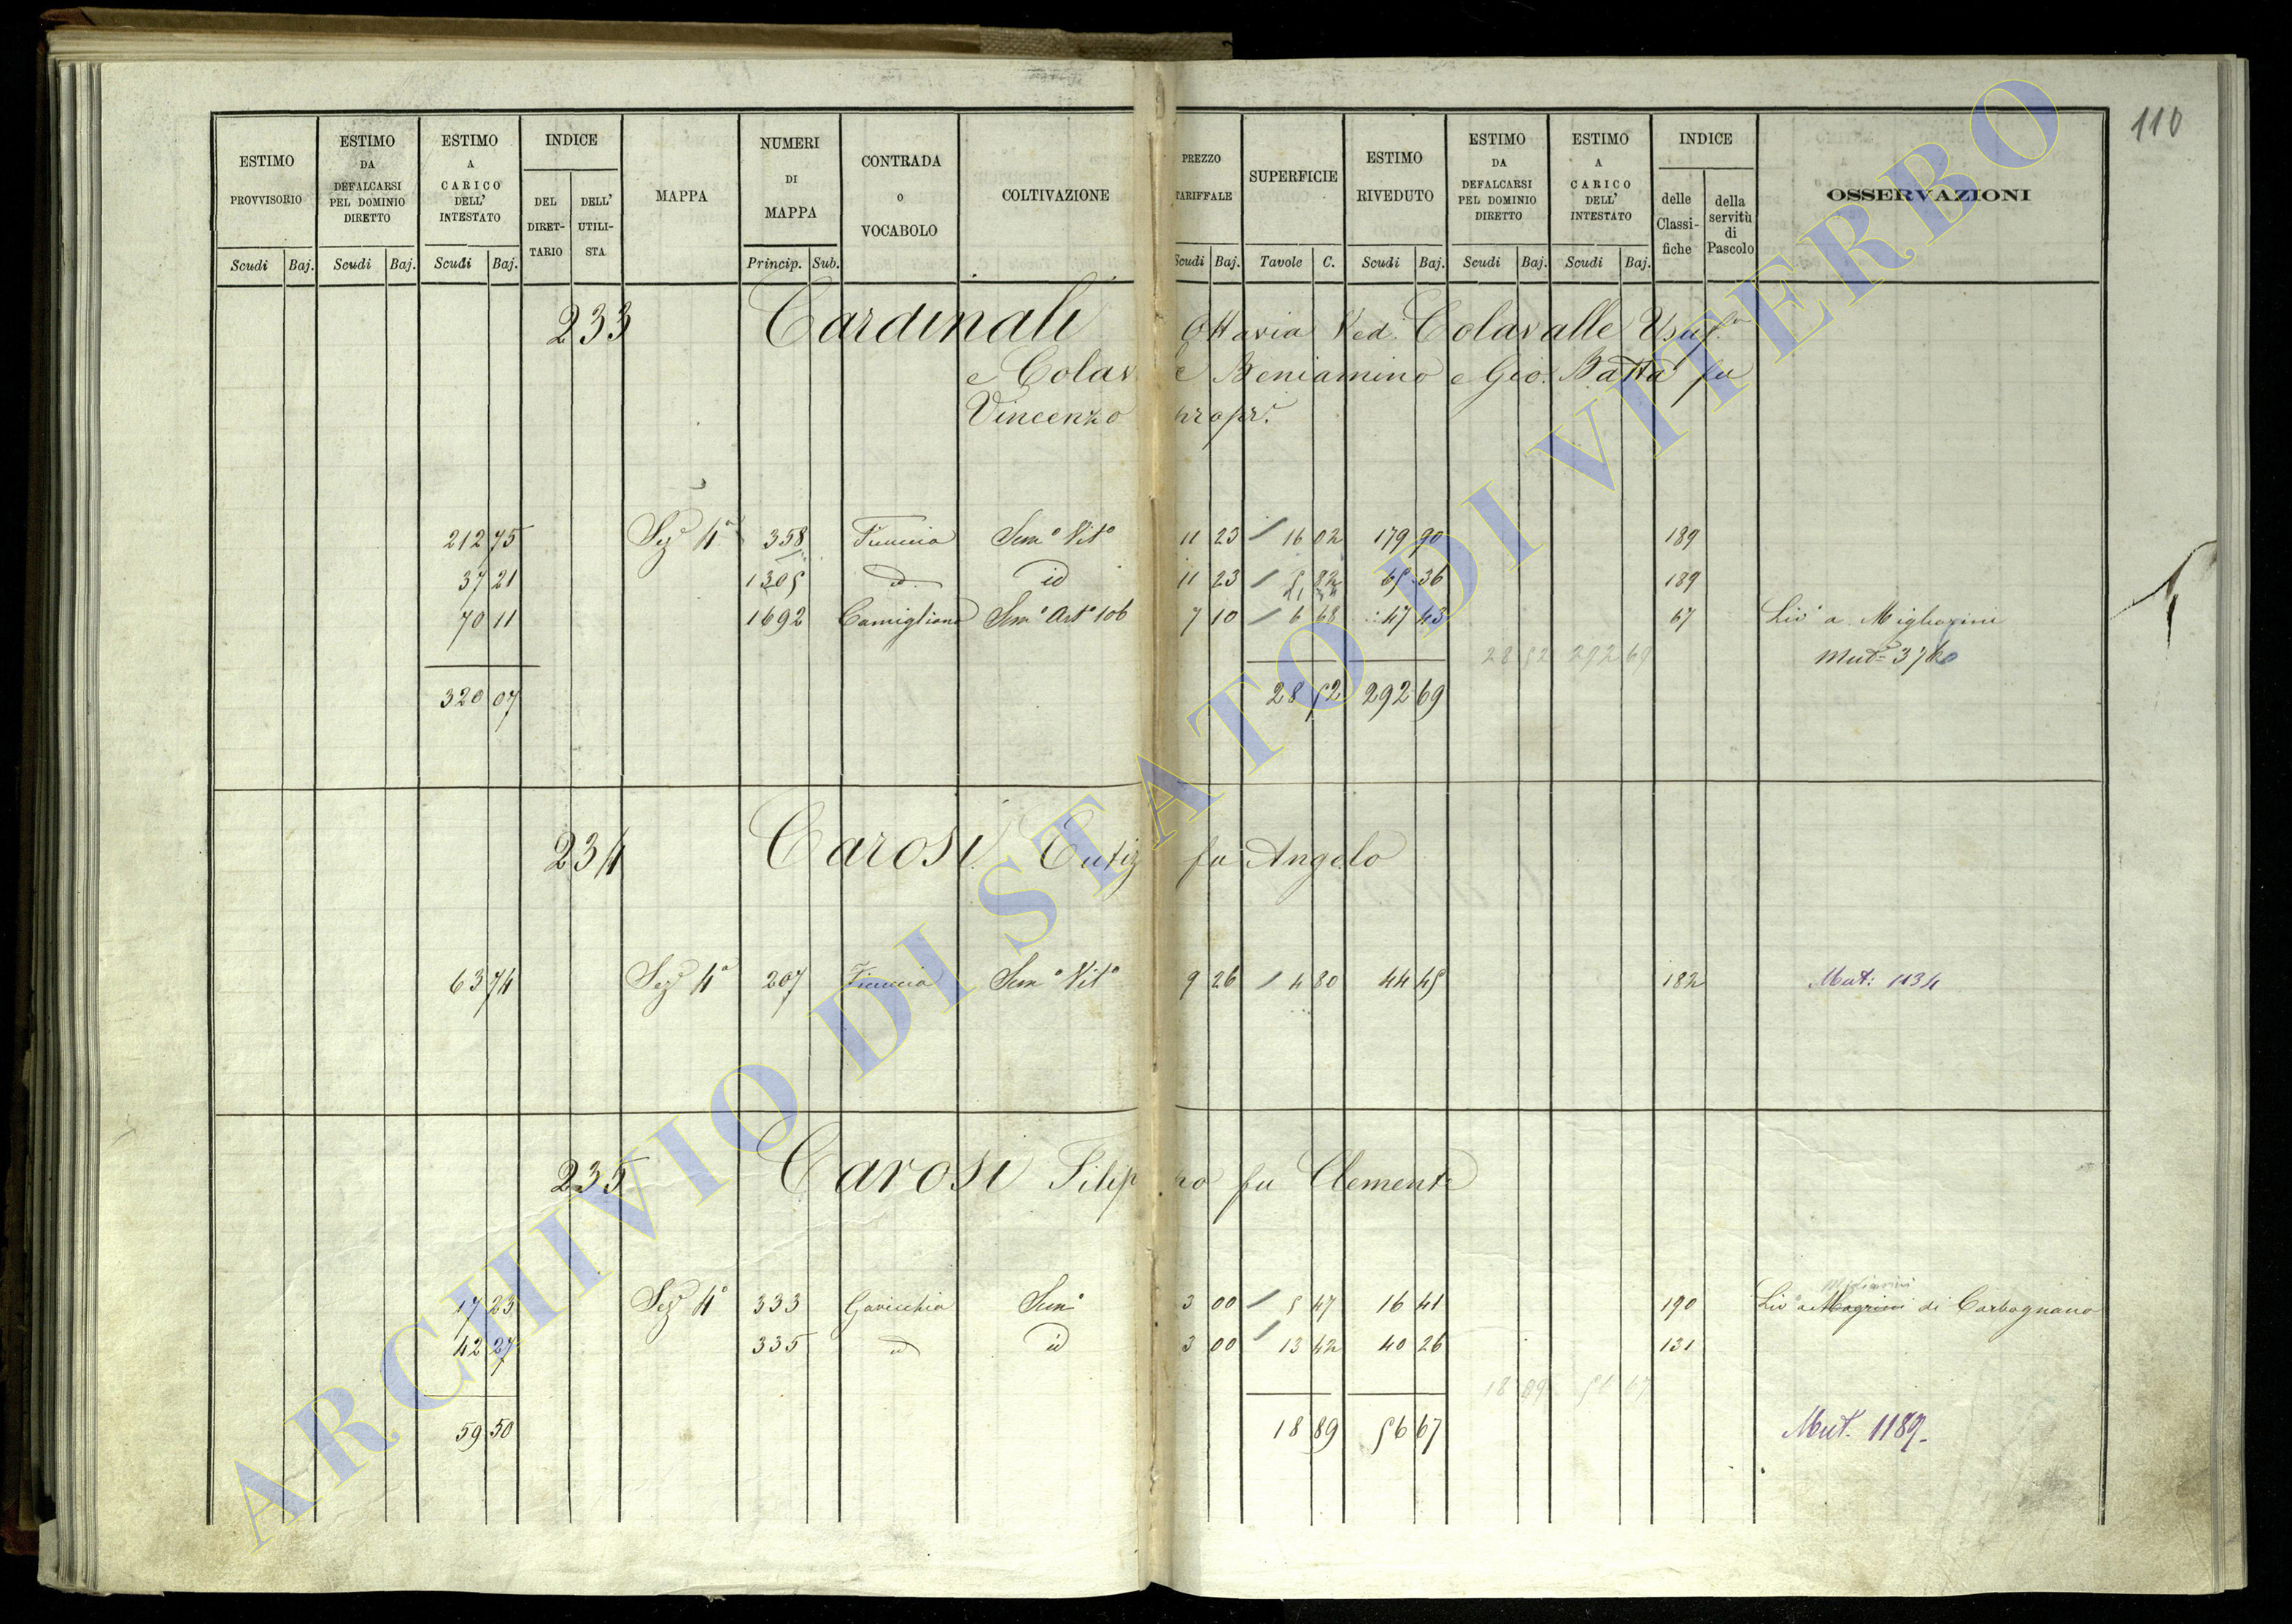 110
ESTIMO PROVVISORIO
ESTIMO DA DEFALCARSI PEL DOMINIO DIRETTO
ESTIMO A CARICO DELL' INTESTATO
INDICE
DEL DIRET-TARIO
DELL' UTILI-STA
MAPPA
NUMERI DI MAPPA
CONTRADA O VOCABOLO
COLTIVAZIONE
PREZZO TARIFFALE
SUPERFICIE
ESTIMO RIVEDUTO
ESTIMO DA DEFALCARSI PEL DOMINIO DIRETTO
ESTIMO A CARICO DELL' INTESTATO
INDICE
delle Classi-fiche
della servitù di Pascolo
OSSERVAZIONI
Scudi Baj. Scudi Baj. Scudi Baj. Princip. Sub. Scudi Baj. Tavole C. Scudi Baj. Scudi Baj. Scudi Baj.
233 Cardinali Ottavia Ved. Colavalle Usuf.a
e Colav e Beniamino e Gio. Batta fu
Vincenzo propr.
212 75 Sez 4a 358 Ficuccia Sem° Vit° 11 23 16 02 179 90 189
37 21 1305 id id 11 23 5 82 65 36 189
70 11 1692 Camigliano Sem° Art° 106 7 10 6 68 47 43 67 Liv° a Migliorini
28 52 292 69 Mut.
320 07 28 52 292 69
234 Carosi Eutiz fu Angelo
63 74 Sez 4a 207 Ficuccia Sem° Vit° 9 26 4 80 44 45 182 Mut: 1134
235 Carosi Filippo fu Clemente
Migliorini
17 23 Sez 4a 333 Gavicchia Sem° 3 00 5 47 16 41 190 Liv° a Magrini di Carbognano
42 27 335 id id 3 00 13 42 40 26 131
18 89 67
59 50 18 89 56 67 Mut. 1189.
ARCHIVIO DI STATO DI VITERBO